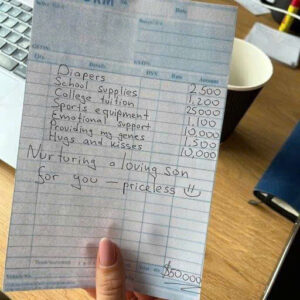 Details
Rate
Amount
Diapers 2,500
School supplies 1,200
College tuition 25000
Sports equipment 1,100
Emotional support 10,000
Providing my genes 500
Hugs and kisses 10,000
Nurturing a loving son
for you — priceless
$50000